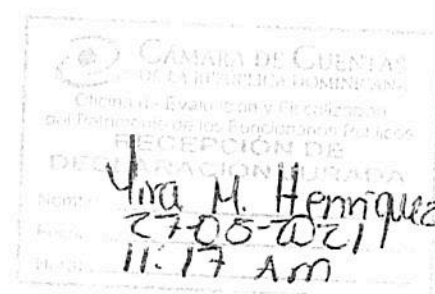 CÁMARA DE CUENTAS
DE LA REPÚBLICA DOMINICANA
Oficina de Evaluación y Fiscalización
del Patrimonio de los Funcionarios Públicos
RECEPCIÓN DE
DECLARACIÓN JURADA
Nombre
Yira M. Henriquez
Fecha
27-05-2021
Hora
11:17 Am